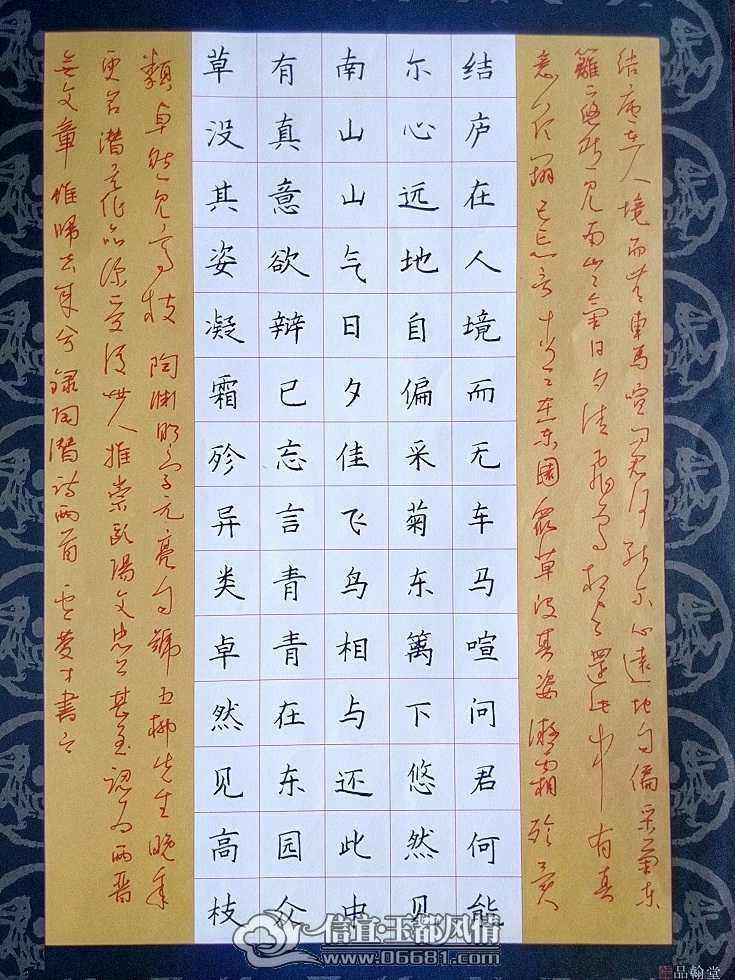 結廬在人境而無車馬喧問君何能尔心遠地自偏采菊东
籬下悠然見南山山氣日夕佳飛鳥相与還此中有真
意欲辩已忘言青青在东園衆草没其姿凝霜殄異
结庐在人境而无车马喧问君何能
尔心远地自偏采菊东篱下悠然见
南山山气日夕佳飞鸟相与还此中
有真意欲辩已忘言青青在东园众
草没其姿凝霜殄异类卓然见高枝
類卓然見高枝 陶渊明字元亮自號五柳先生晚年
更名潜其作品深受後世人推崇歐陽文忠公甚至認为兩晋
無文章惟歸去来兮 録陶潜詩兩首 黄才書之
信宜·玉都风情
www.06681.com
品翰堂